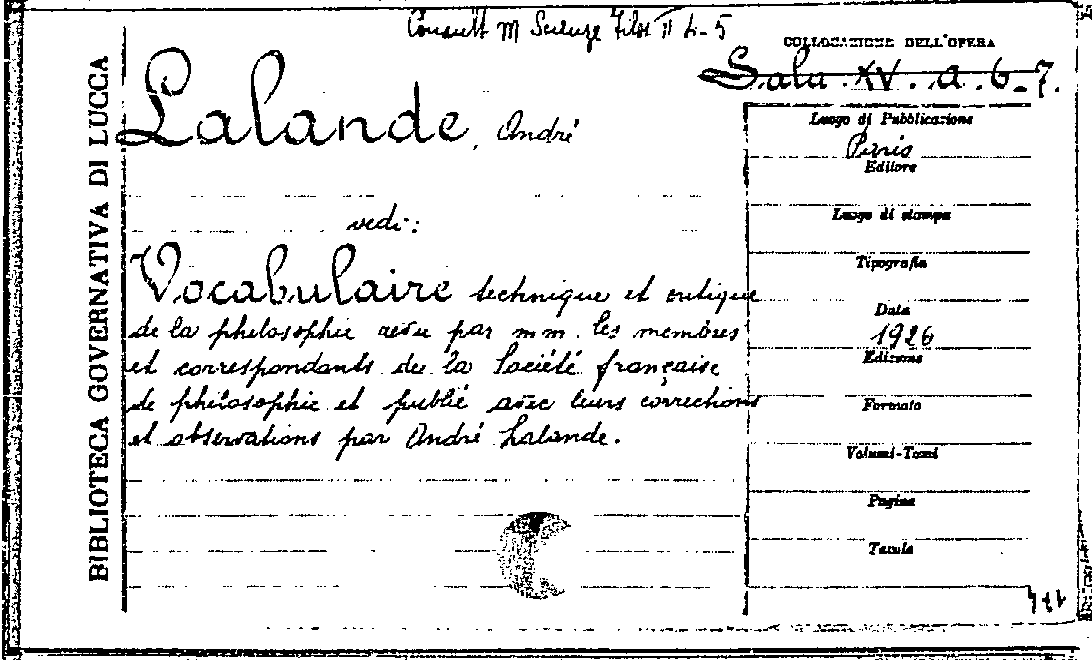 Consult M Scienze Filos II 4-5
COLLOCAZIONE DELL'OPERA
Sala XV. a. 6-7.
BIBLIOTECA GOVERNATIVA DI LUCCA
Lalande, André
vedi:
Vocabulaire technique et critique
de la philosophie revu par mm. les membres
et correspondants de la Société française
de philosophie et publié avec leurs corrections
et observations par André Lalande.
Luogo di Pubblicazione
Paris
Editore
Luogo di stampa
Tipografia
Data
1926
Edizione
Formato
Volumi-Tomi
Pagine
Tavole